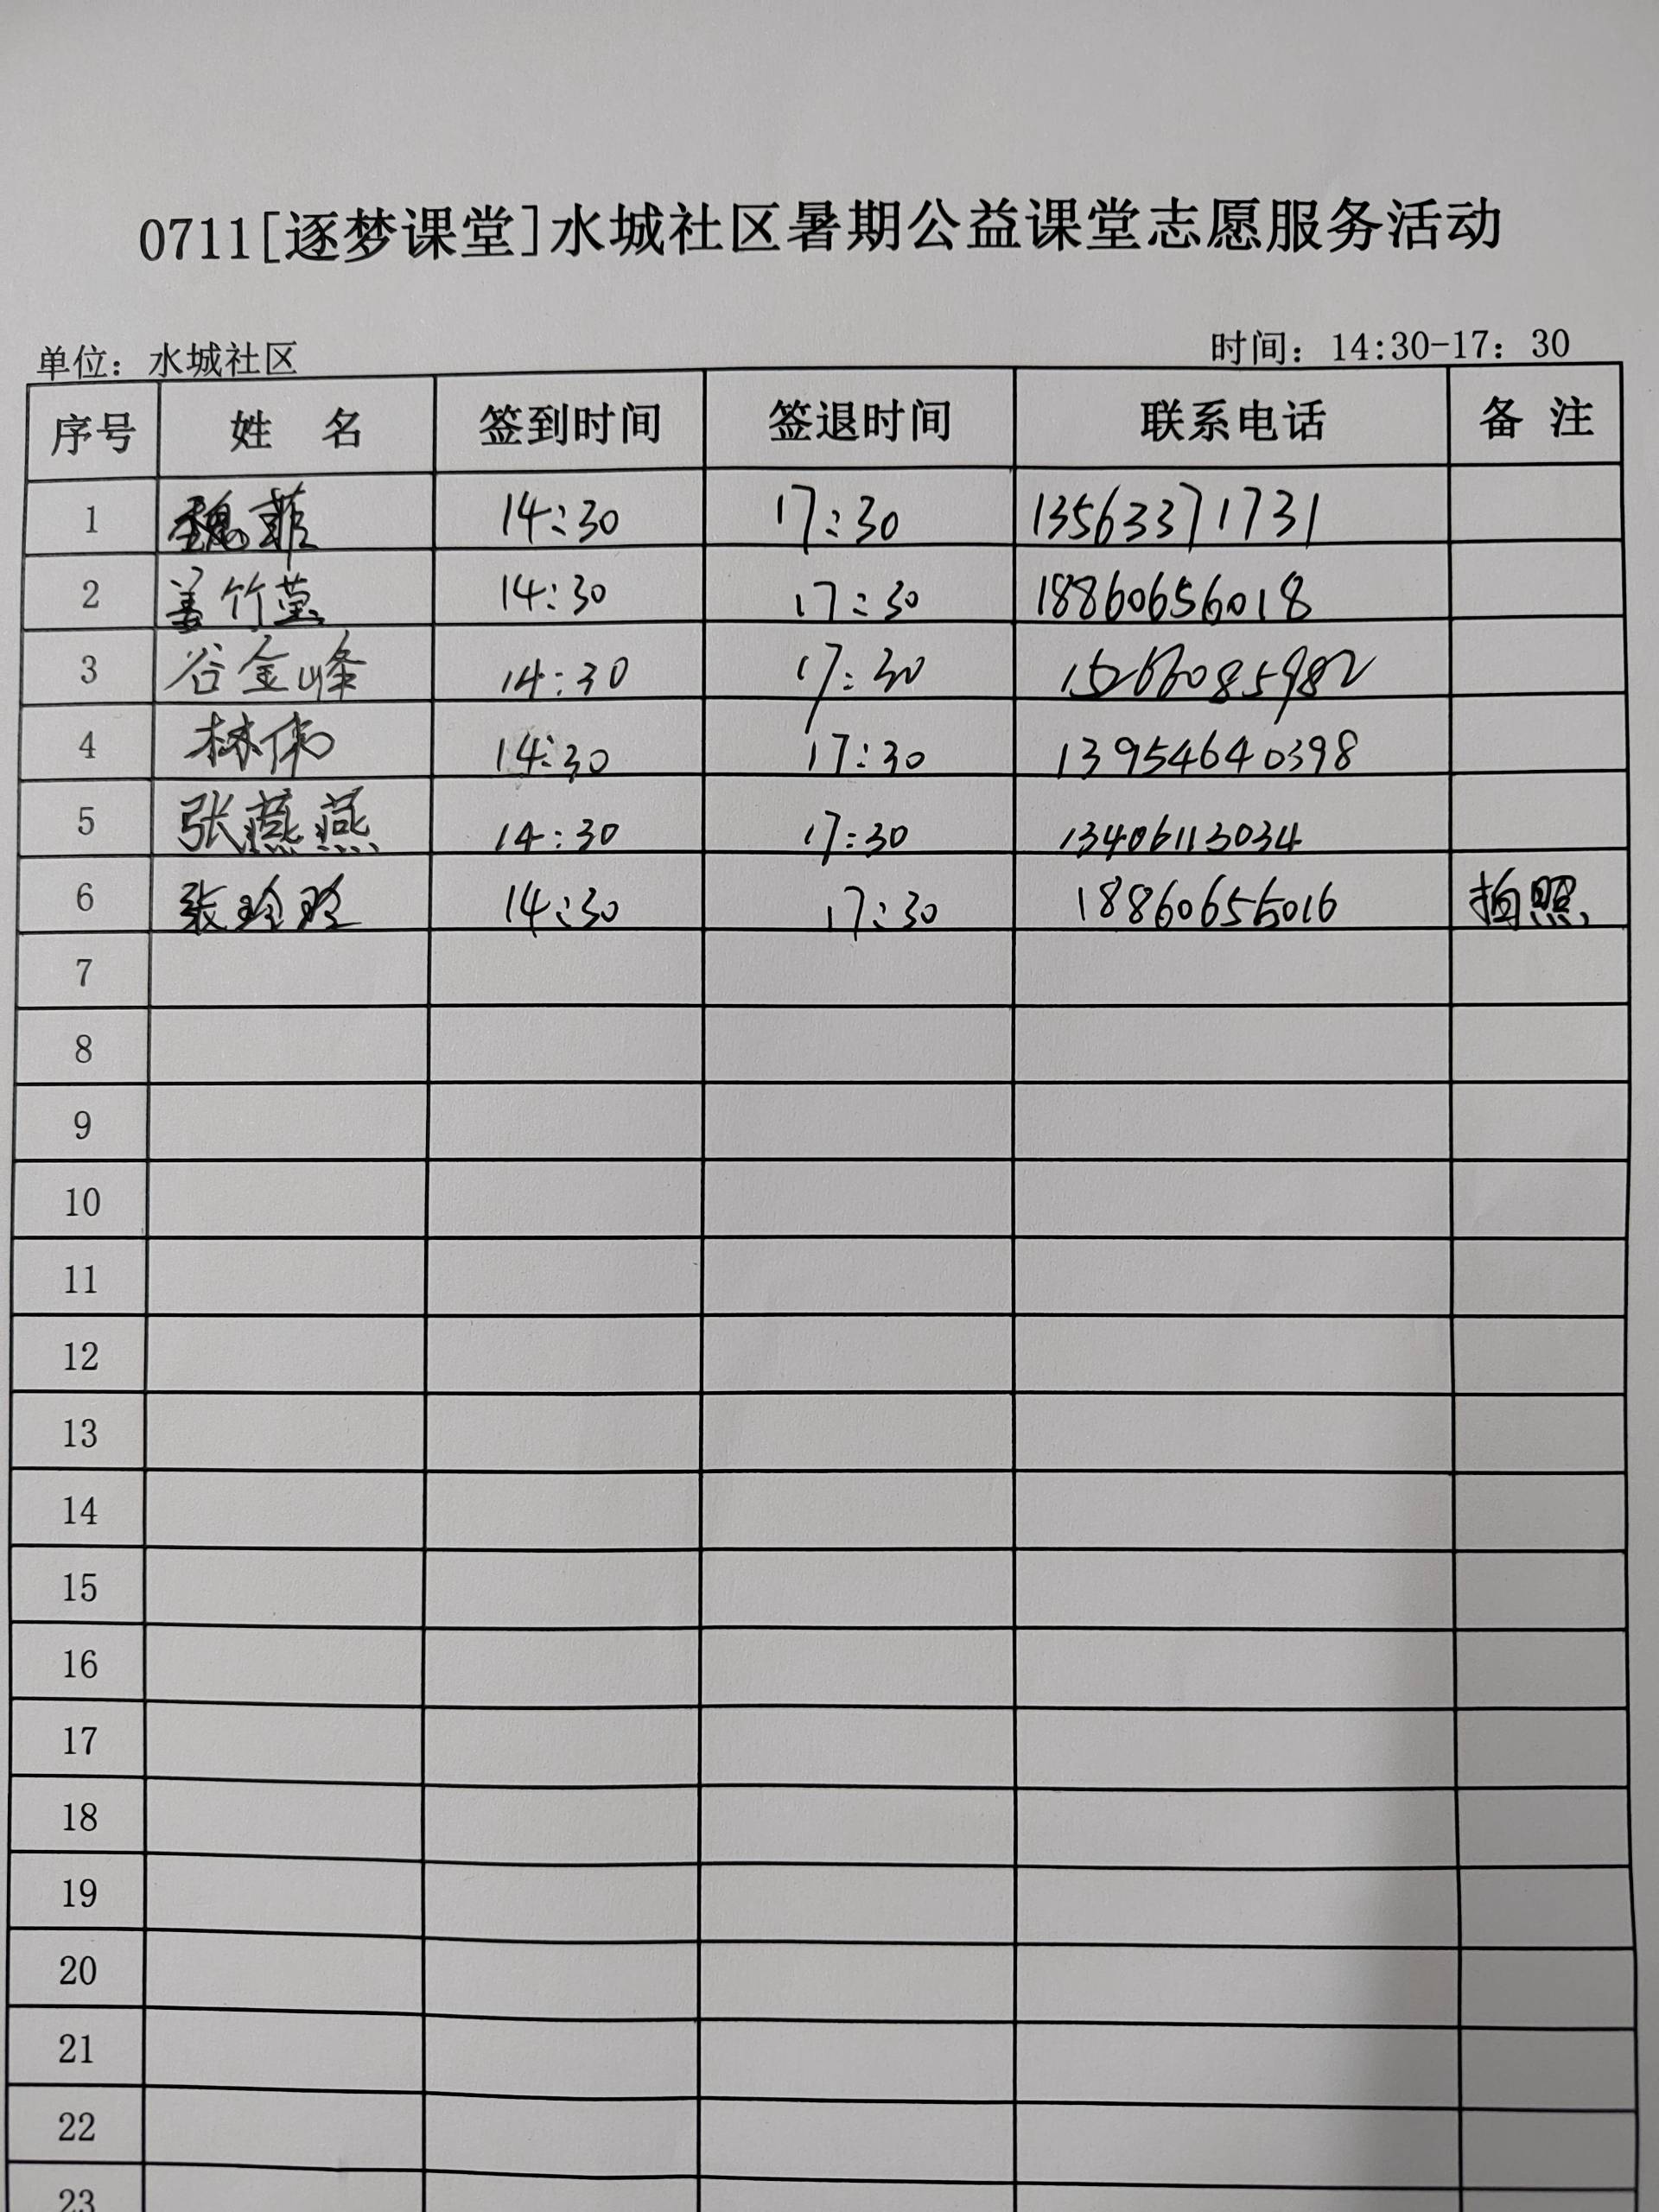 0711[逐梦课堂]水城社区暑期公益课堂志愿服务活动
单位：水城社区 时间：14:30-17：30
序号 姓 名 签到时间 签退时间 联系电话 备 注
1 魏菲 14:30 17:30 13563371731
2 姜竹莹 14:30 17:30 18860656018
3 谷金峰 14:30 17:30
4 林伟 14:30 17:30 13954640398
5 张燕燕 14:30 17:30 13406113034
6 张玲玲 14:30 17:30 18860656016 拍照
7
8
9
10
11
12
13
14
15
16
17
18
19
20
21
22
23